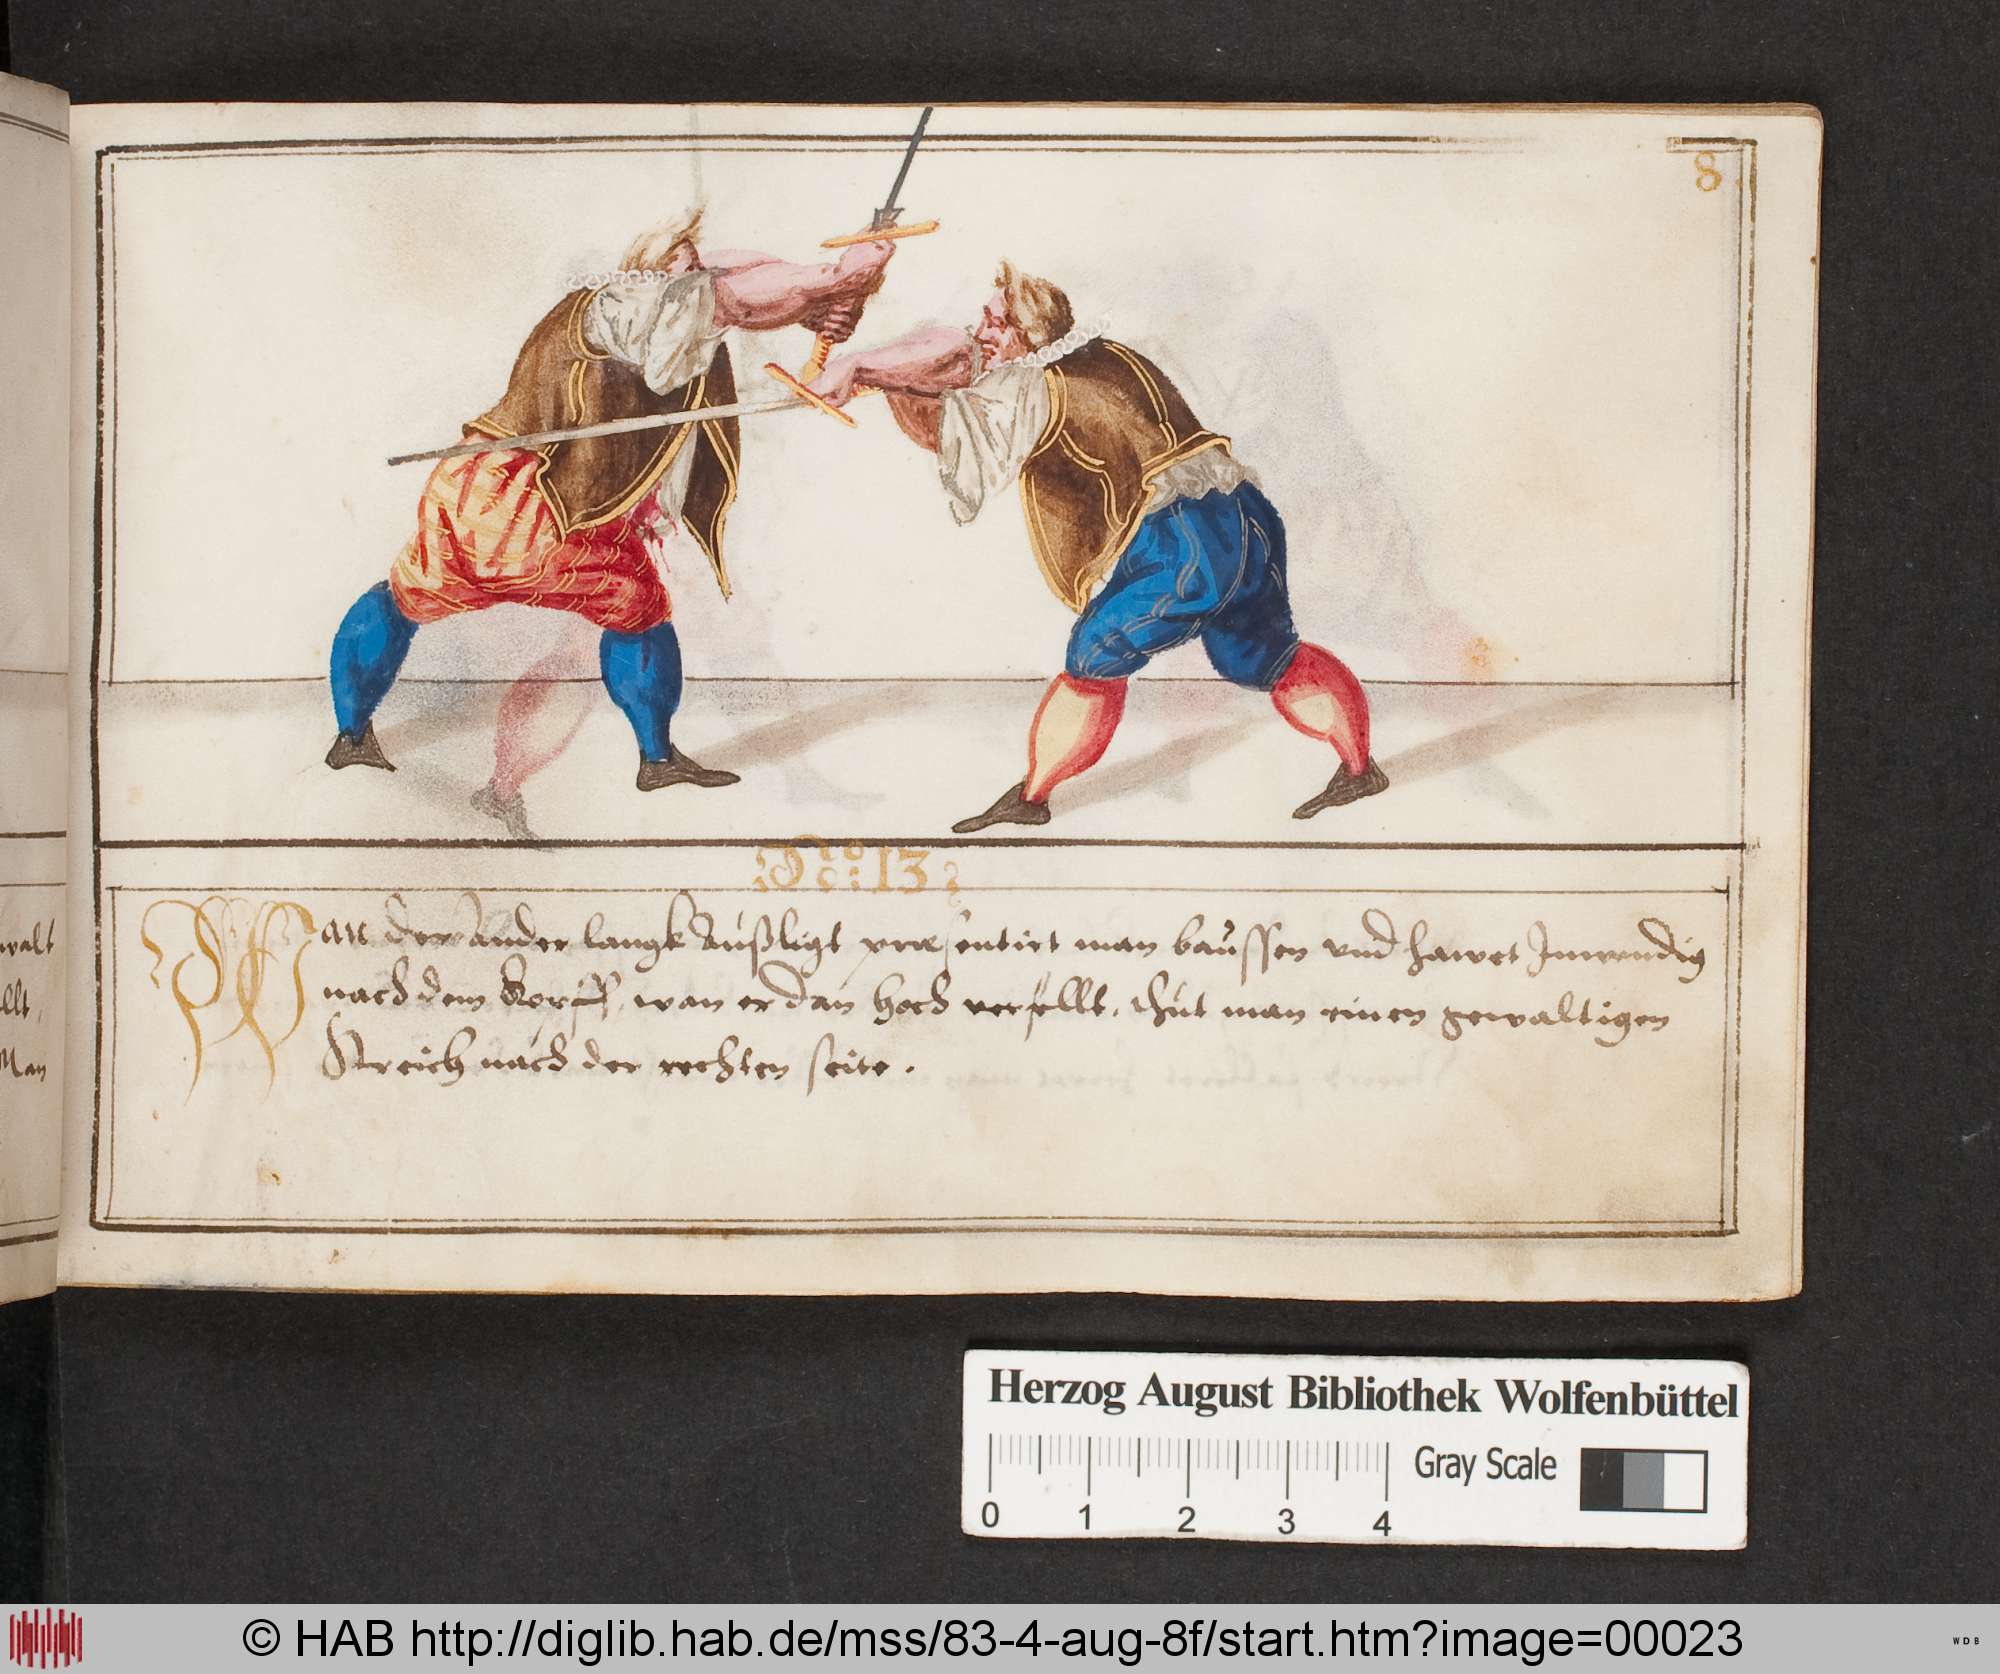 8
No: 13
Wan der ander langk außligt præsentirt man baussen vnd hawet Inwendig
nach dem Korff, wan er dan hoch versellt, thut man einen gewaltigen
Streich nach der rechten seite.
walt
llt,
Man
Herzog August Bibliothek Wolfenbüttel
Gray Scale
0 1 2 3 4
© HAB http://diglib.hab.de/mss/83-4-aug-8f/start.htm?image=00023
WDB